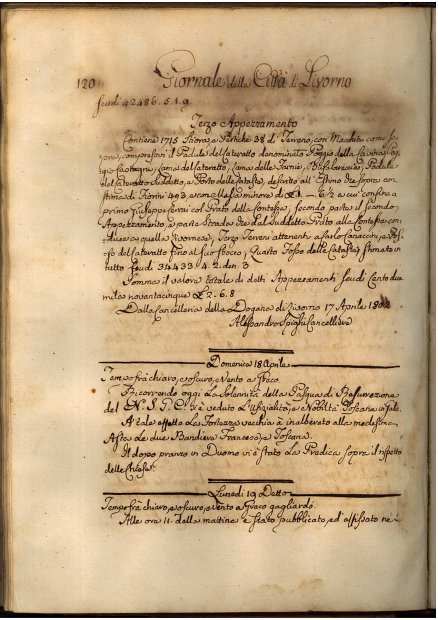 120 Giornale della Città di Livorno
scudi 42486. 5. 1. 9
Terzo Appezzamento
Contiene 1715 Stiora, e Pertiche 38 di Terreno, con Macchia come so-
pra, compresovi il Padule del Calaratto denominato Poggio della
del Calaratto, Cana delle Bufalareccia, Padule
del Calaratto suddetto, e Porto delle Cataste, descritto all'Estimo di e sopra con
stima di Fiorini 493 e con della minore di a cui confina a
primo Giuseppe col Prato della Contessa, secondo parte il secondo
Appezzamento, e parte Strada che dal suddetto Prato alla Contessa con-
duce a quella Livornese, Terzo Terreni attenenti a Carlo
so del Calaratto fino al suo sbocco; Quarto Fosso delle Cataste, stimato in
tutto Scudi 31433. 4. 2. den. 3
Somma il valore totale di detti Appezzamenti Scudi Cento due
mila novantacinque £ 2. 6. 8
Dalla Cancelleria della Dogana di Livorno 17 Aprile
Alessandro Cancelliere
Domenica 18 Aprile
Tempo frà chiaro, e oscuro, e Vento a Greco.
Ricorrendo oggi la Solennità della Pasqua di Resurrezione
del N. S. G. C. si è veduto l'Ufizialità, e Nobiltà Toscana in Gala.
A tale effetto la Fortezza vecchia à inalberato alla medesima
Asta le due Bandiere Francese, e Toscana.
Il dopo pranzo in Duomo vi è stato la Predica sopra il rispetto
delle Chiese.
Lunedì 19 Detto
Tempo frà chiaro, e oscuro, e Vento a Greco gagliardo.
Alle ore 11. della mattina è stato pubblicato, ed affissato ne i